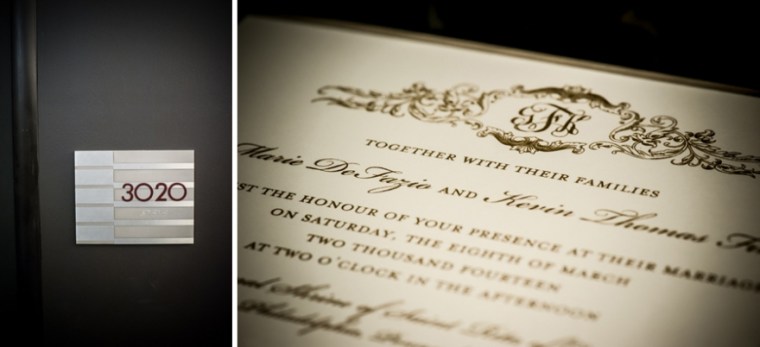 3020
TOGETHER WITH THEIR FAMILIES
Marie DeFazio AND Kevin Thomas
THE HONOUR OF YOUR PRESENCE AT THEIR MARRIAGE
ON SATURDAY, THE EIGHTH OF MARCH
TWO THOUSAND FOURTEEN
AT TWO O'CLOCK IN THE AFTERNOON
Shrine of Saint
Philadelphia